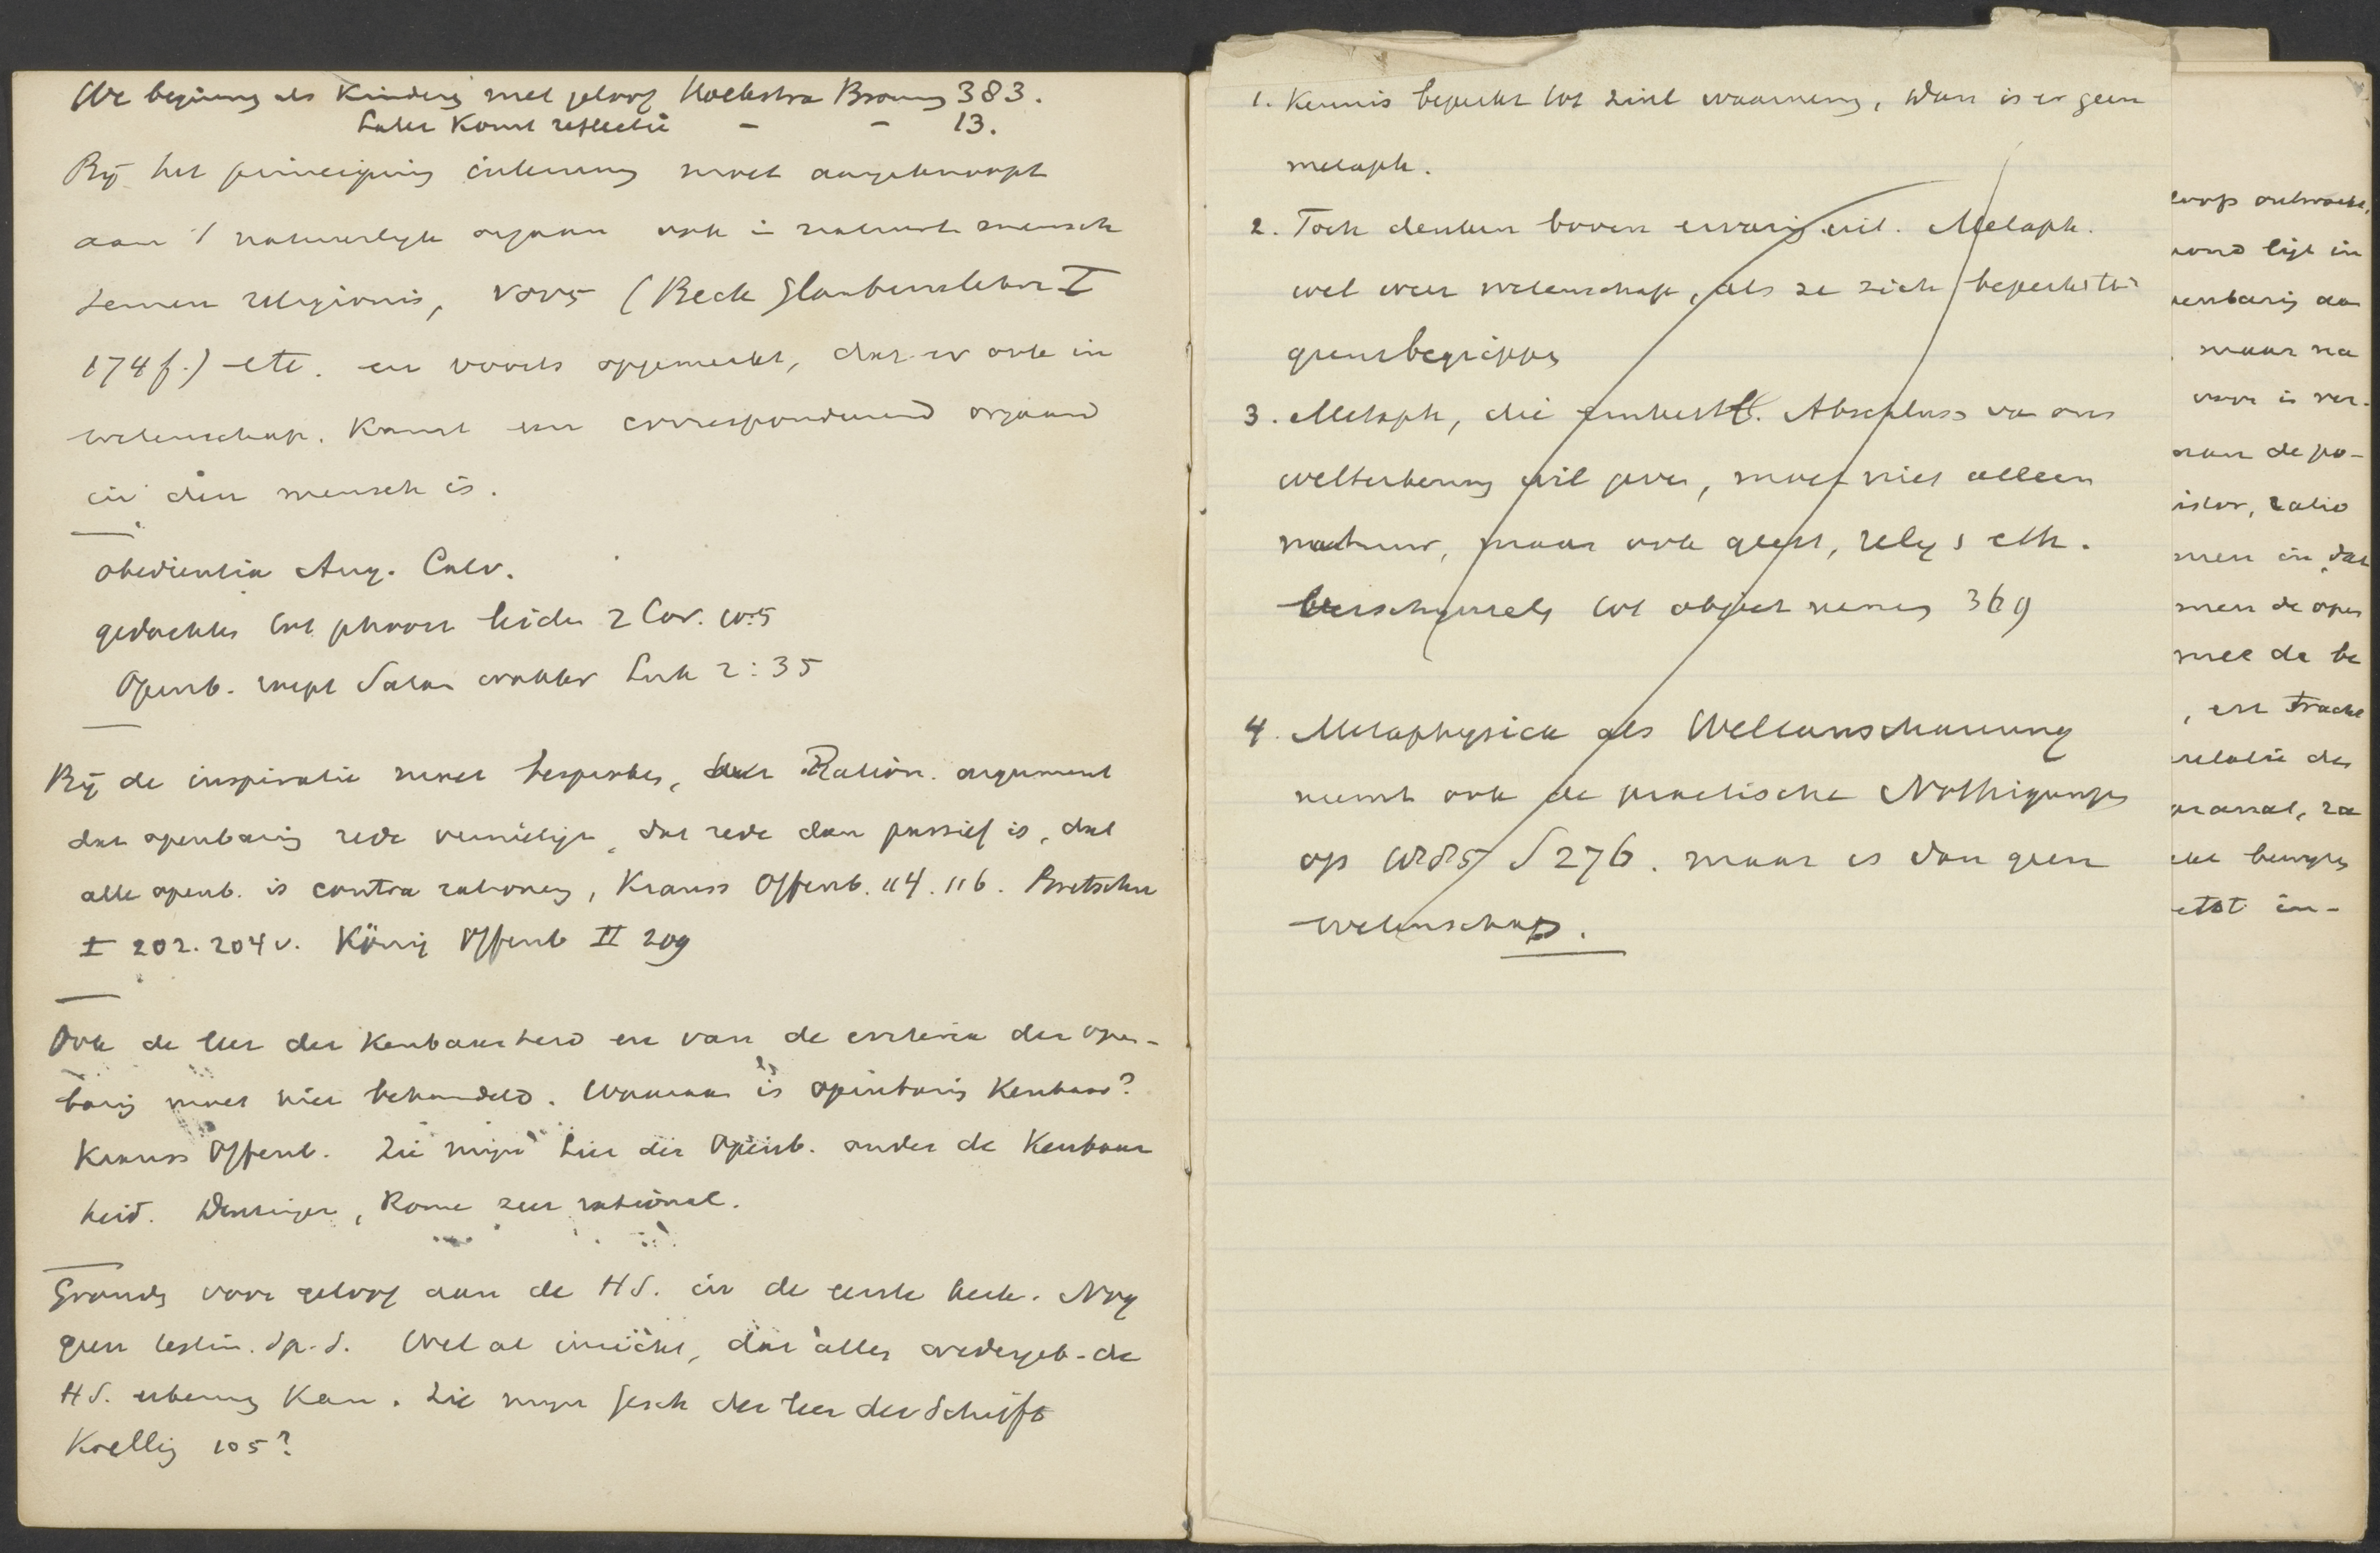 We beginnen als Kinderen met geloof Hoekstra Bronnen 383.
Later Komt reflectie - - 13.
Bij het principium internum moet aangeknoopt
aan 't natuurlijk orgaan ook in natuurl. mensch
semen religionis, νους (Beck Glaubenslehre I
174 f.) etc. en voorts opgemerkt, dat er ook in
wetenschap. Kunst een correspondeerend orgaan
in den mensch is.
obedientia Aug. Calv.
gedachten leiden 2 Cor. 10:5
Openb. Satan wakker Luk 2:35
Bij de inspiratie moet besproken, het Ration. argument
dat openbaring rede vernietigt, dat rede dan passief is, dat
alle openb. is contra rationem, Krauss Offenb. 114. 116. Bretschn
I 202. 204 v. König Offenb II 209
Ook de leer der Kenbaarheid en van de criteria der open-
baring moet hier behandeld. Waaraan is openbaring Kenbaar?
Krauss Offenb. Zie mijne Leer der Openb. onder de Kenbaar
heid. Denzinger, Rome zeer rationeel.
Gronden voor geloof aan de H S. in de eerste kerk. Nog
geen testim. Sp. S. Wel al inzicht, dat alleen wedergeb. de
H S. erkennen Kan. Zie mijne Gesch der leer der Schrift
Koelling 105?
1. Kennis beperkt tot zinl waarneming, dan is er geen
metaph.
2. Toch denken boven ervaring uit. Metaph.
wel weer wetenschap, als ze zich beperkt tot
grensbegrippen
3. Metaph, die einheitl. Abschluss van ons
welterkenning wil geven, moet niet alleen
natuur, maar ook geest, relig & eth.
verschijnselen tot object nemen 369
4. Metaphysica als Weltanschauung
neemt ook de praktische Nöthigungen
op 275 276. maar is dan geen
wetenschap.
ontwaakt,
grond ligt in
openbaring aa
maar na
voor is ver-
de po-
istor, ratio
men in dat
men de open
mee de be
, en tracht
relatie des
, za
bewijs
etst in-